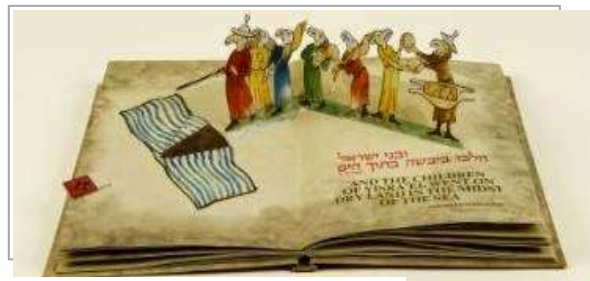 ובני ישראל
הלכו ביבשה בתוך הים
AND THE CHILDREN
OF YISRA'EL WENT ON
DRY LAND IN THE MIDST
OF THE SEA